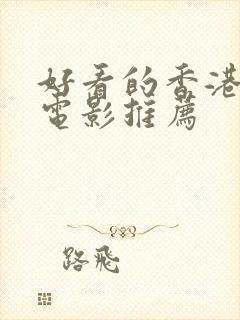 好看的香港
電影推薦
路飛